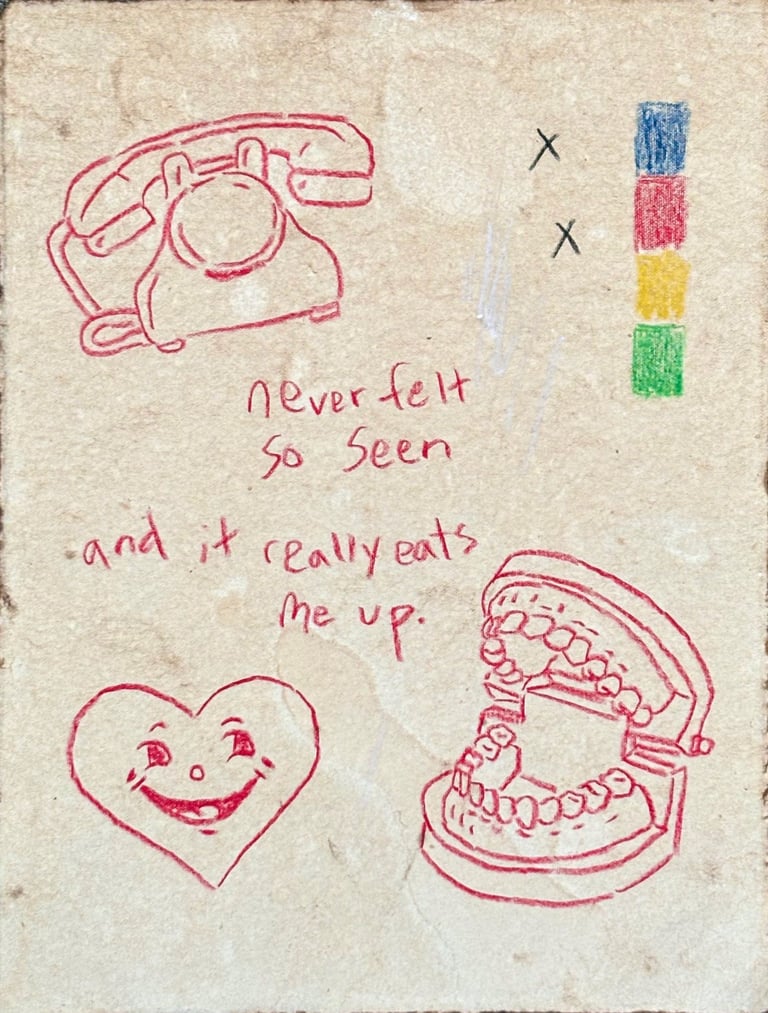 x
x
never felt
so seen
and it really eats
me up.